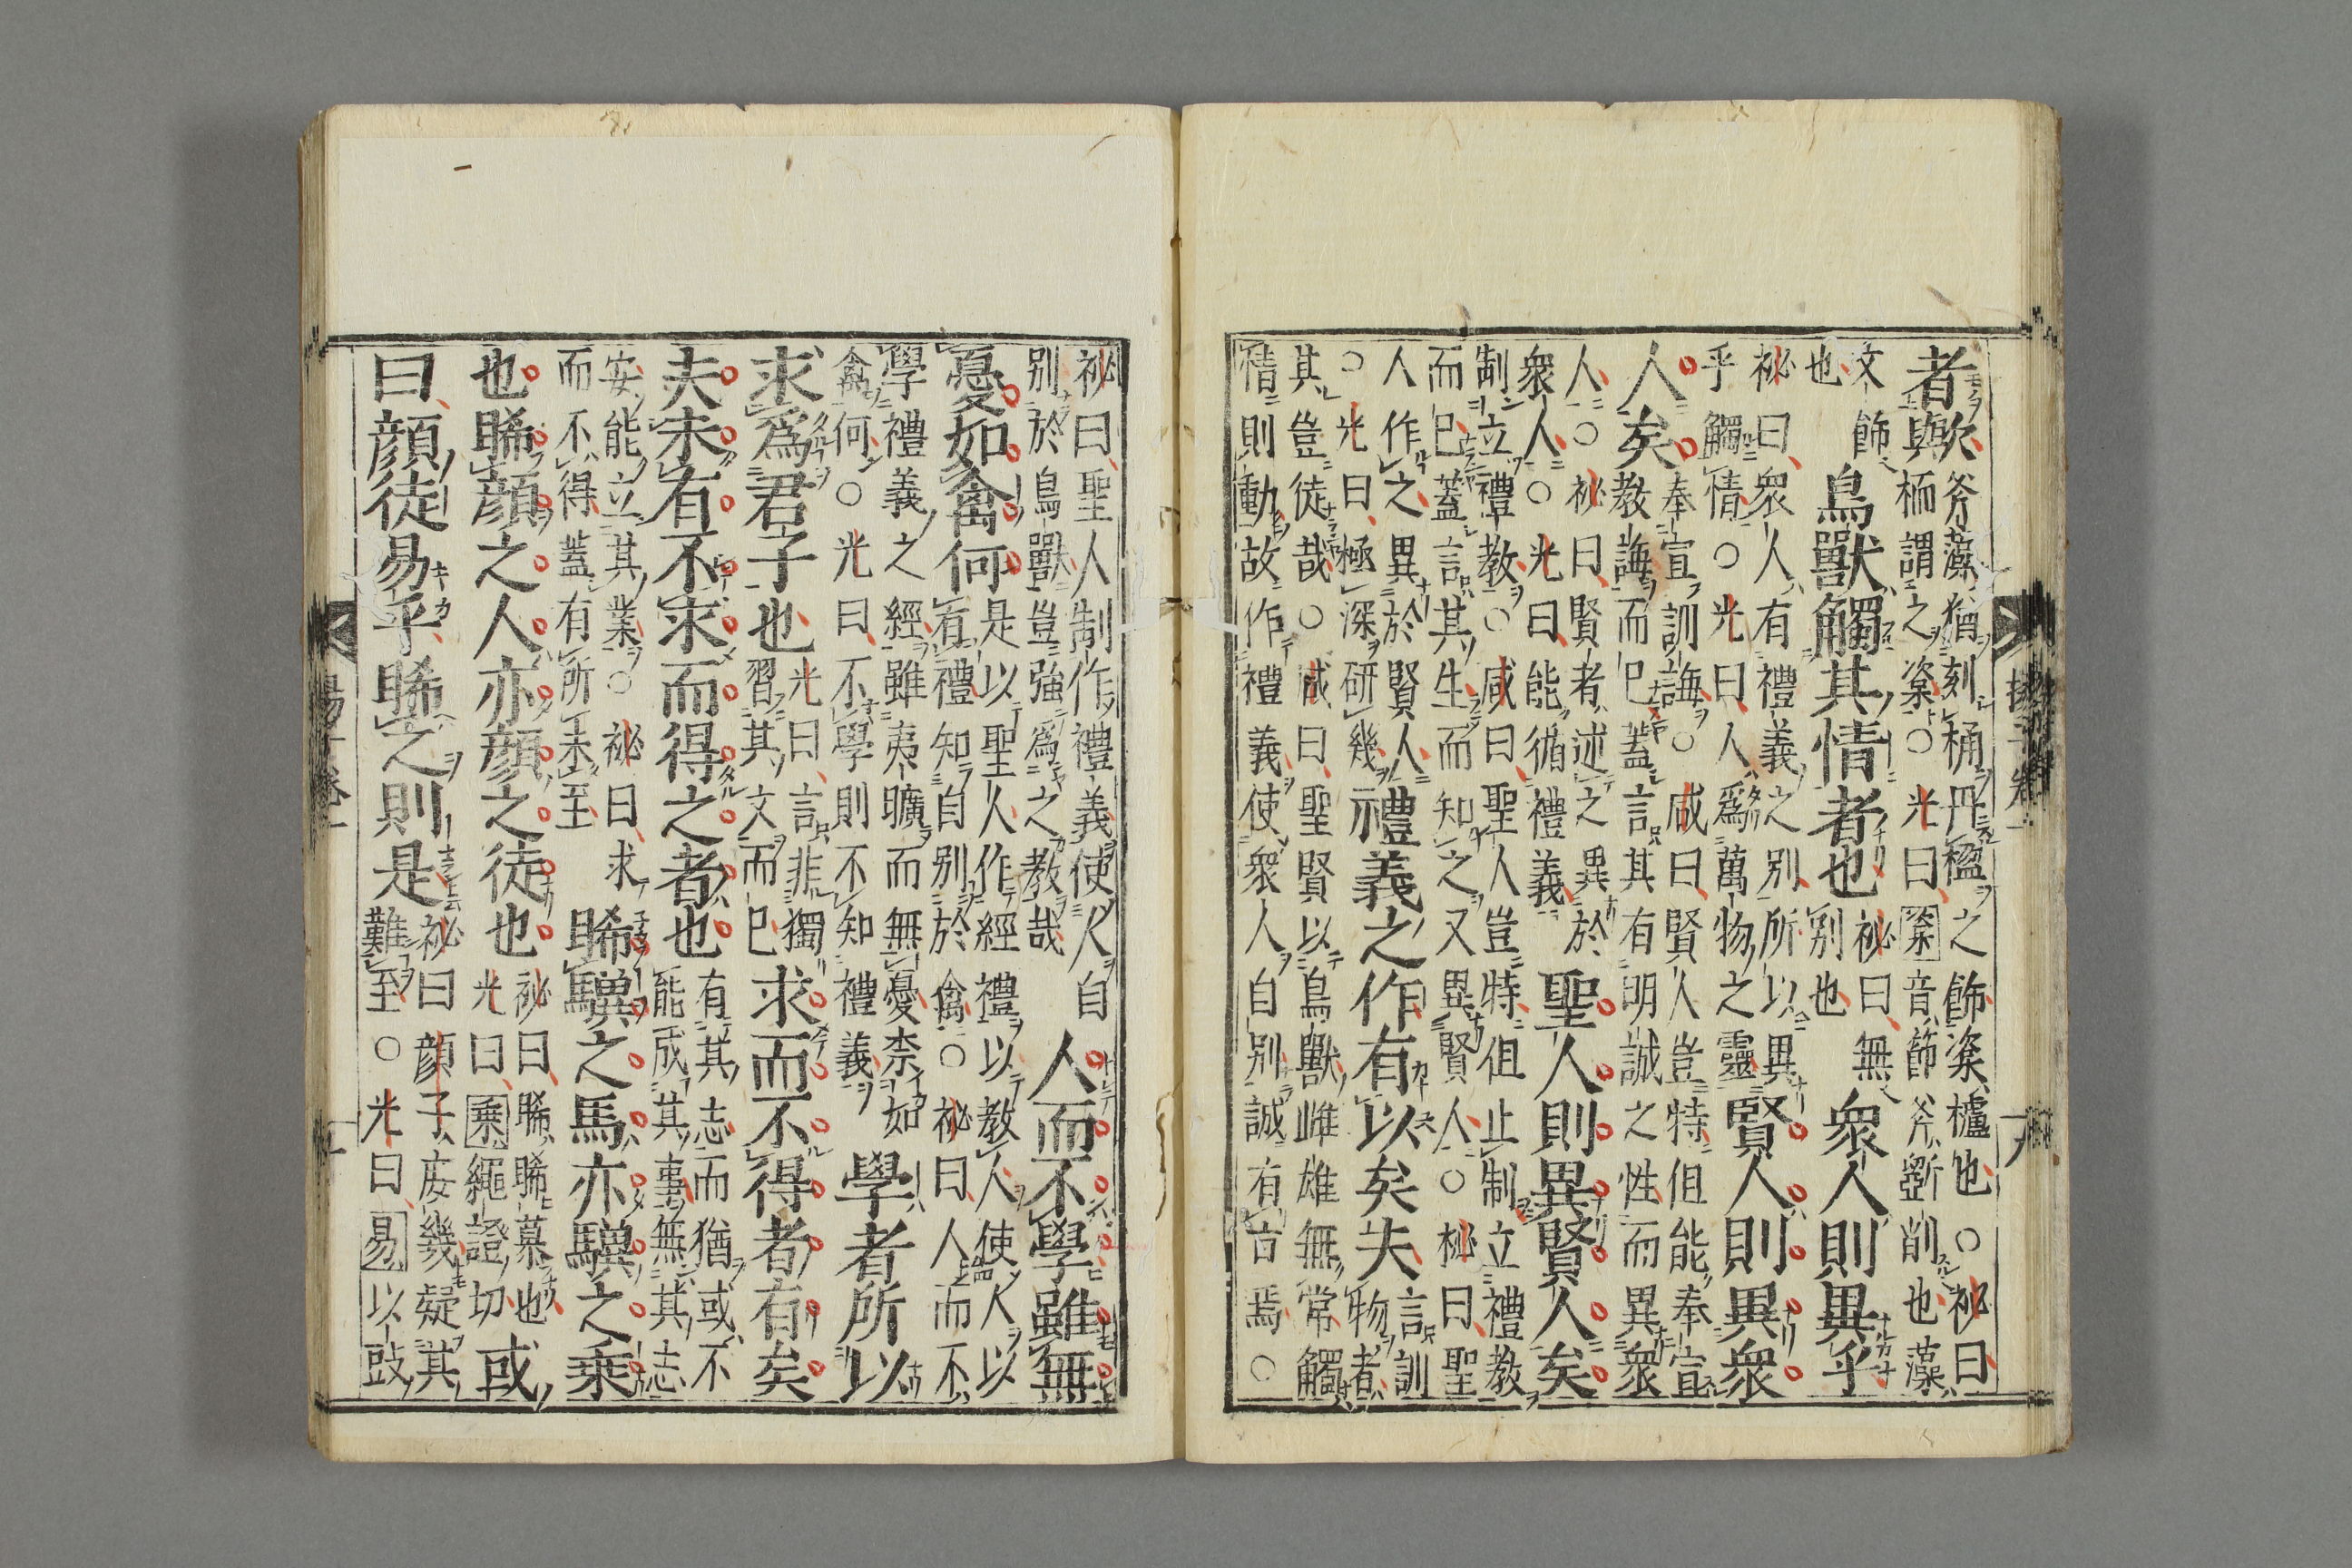 者歟斧藻猶刻桶丹楹之飾楶櫨也○祕曰
栭謂之楶○光曰楶音節斧斲削也藻
文飾
也
鳥獸觸其情者也
祕曰無
別也
衆人則異乎
祕曰衆人有禮義之別所以異
乎觸情○光曰人爲萬物之靈
賢人則異衆
人矣
奉宣訓誨○咸曰賢人豈特但能奉宣
教誨而已蓋言其有明誠之性而異衆
人○祕曰賢者述之異於
衆人○光曰能循禮義
聖人則異賢人矣
制立禮教○咸曰聖人豈特但止制立禮教
而已蓋言其生而知之又異賢人○祕曰聖
人作之異於賢人
○光曰極深研幾
禮義之作有以矣夫
言訓
物者
其豈徒哉○咸曰聖賢以鳥獸雌雄無常觸
情則動故作禮義使衆人自別誠有旨焉○
祕曰聖人制作禮義使人自
別於鳥獸豈強爲之教哉
人而不學雖無
憂如禽何
是以聖人作經禮以教人使人以
有禮知自別於禽○祕曰人而不
學禮義之經雖夷曠而無憂柰如
禽何○光曰不學則不知禮義
學者所以
求爲君子也
光曰言非獨
習其文而已
求而不得者有矣
夫未有不求而得之者也
有其志而猶或不
能成其事無其志
安能立其業○祕曰求
而不得蓋有所未至
睎驥之馬亦驥之乘
也睎顏之人亦顏之徒也
祕曰睎睎慕也
光曰乘繩證切
或
曰顏徒易乎睎之則是
祕曰顏子庶幾疑其
難至○光曰易以豉